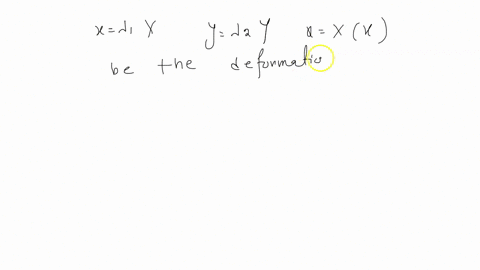 x = λ1 X y = λ2 Y x = X (x)
be the deformatio